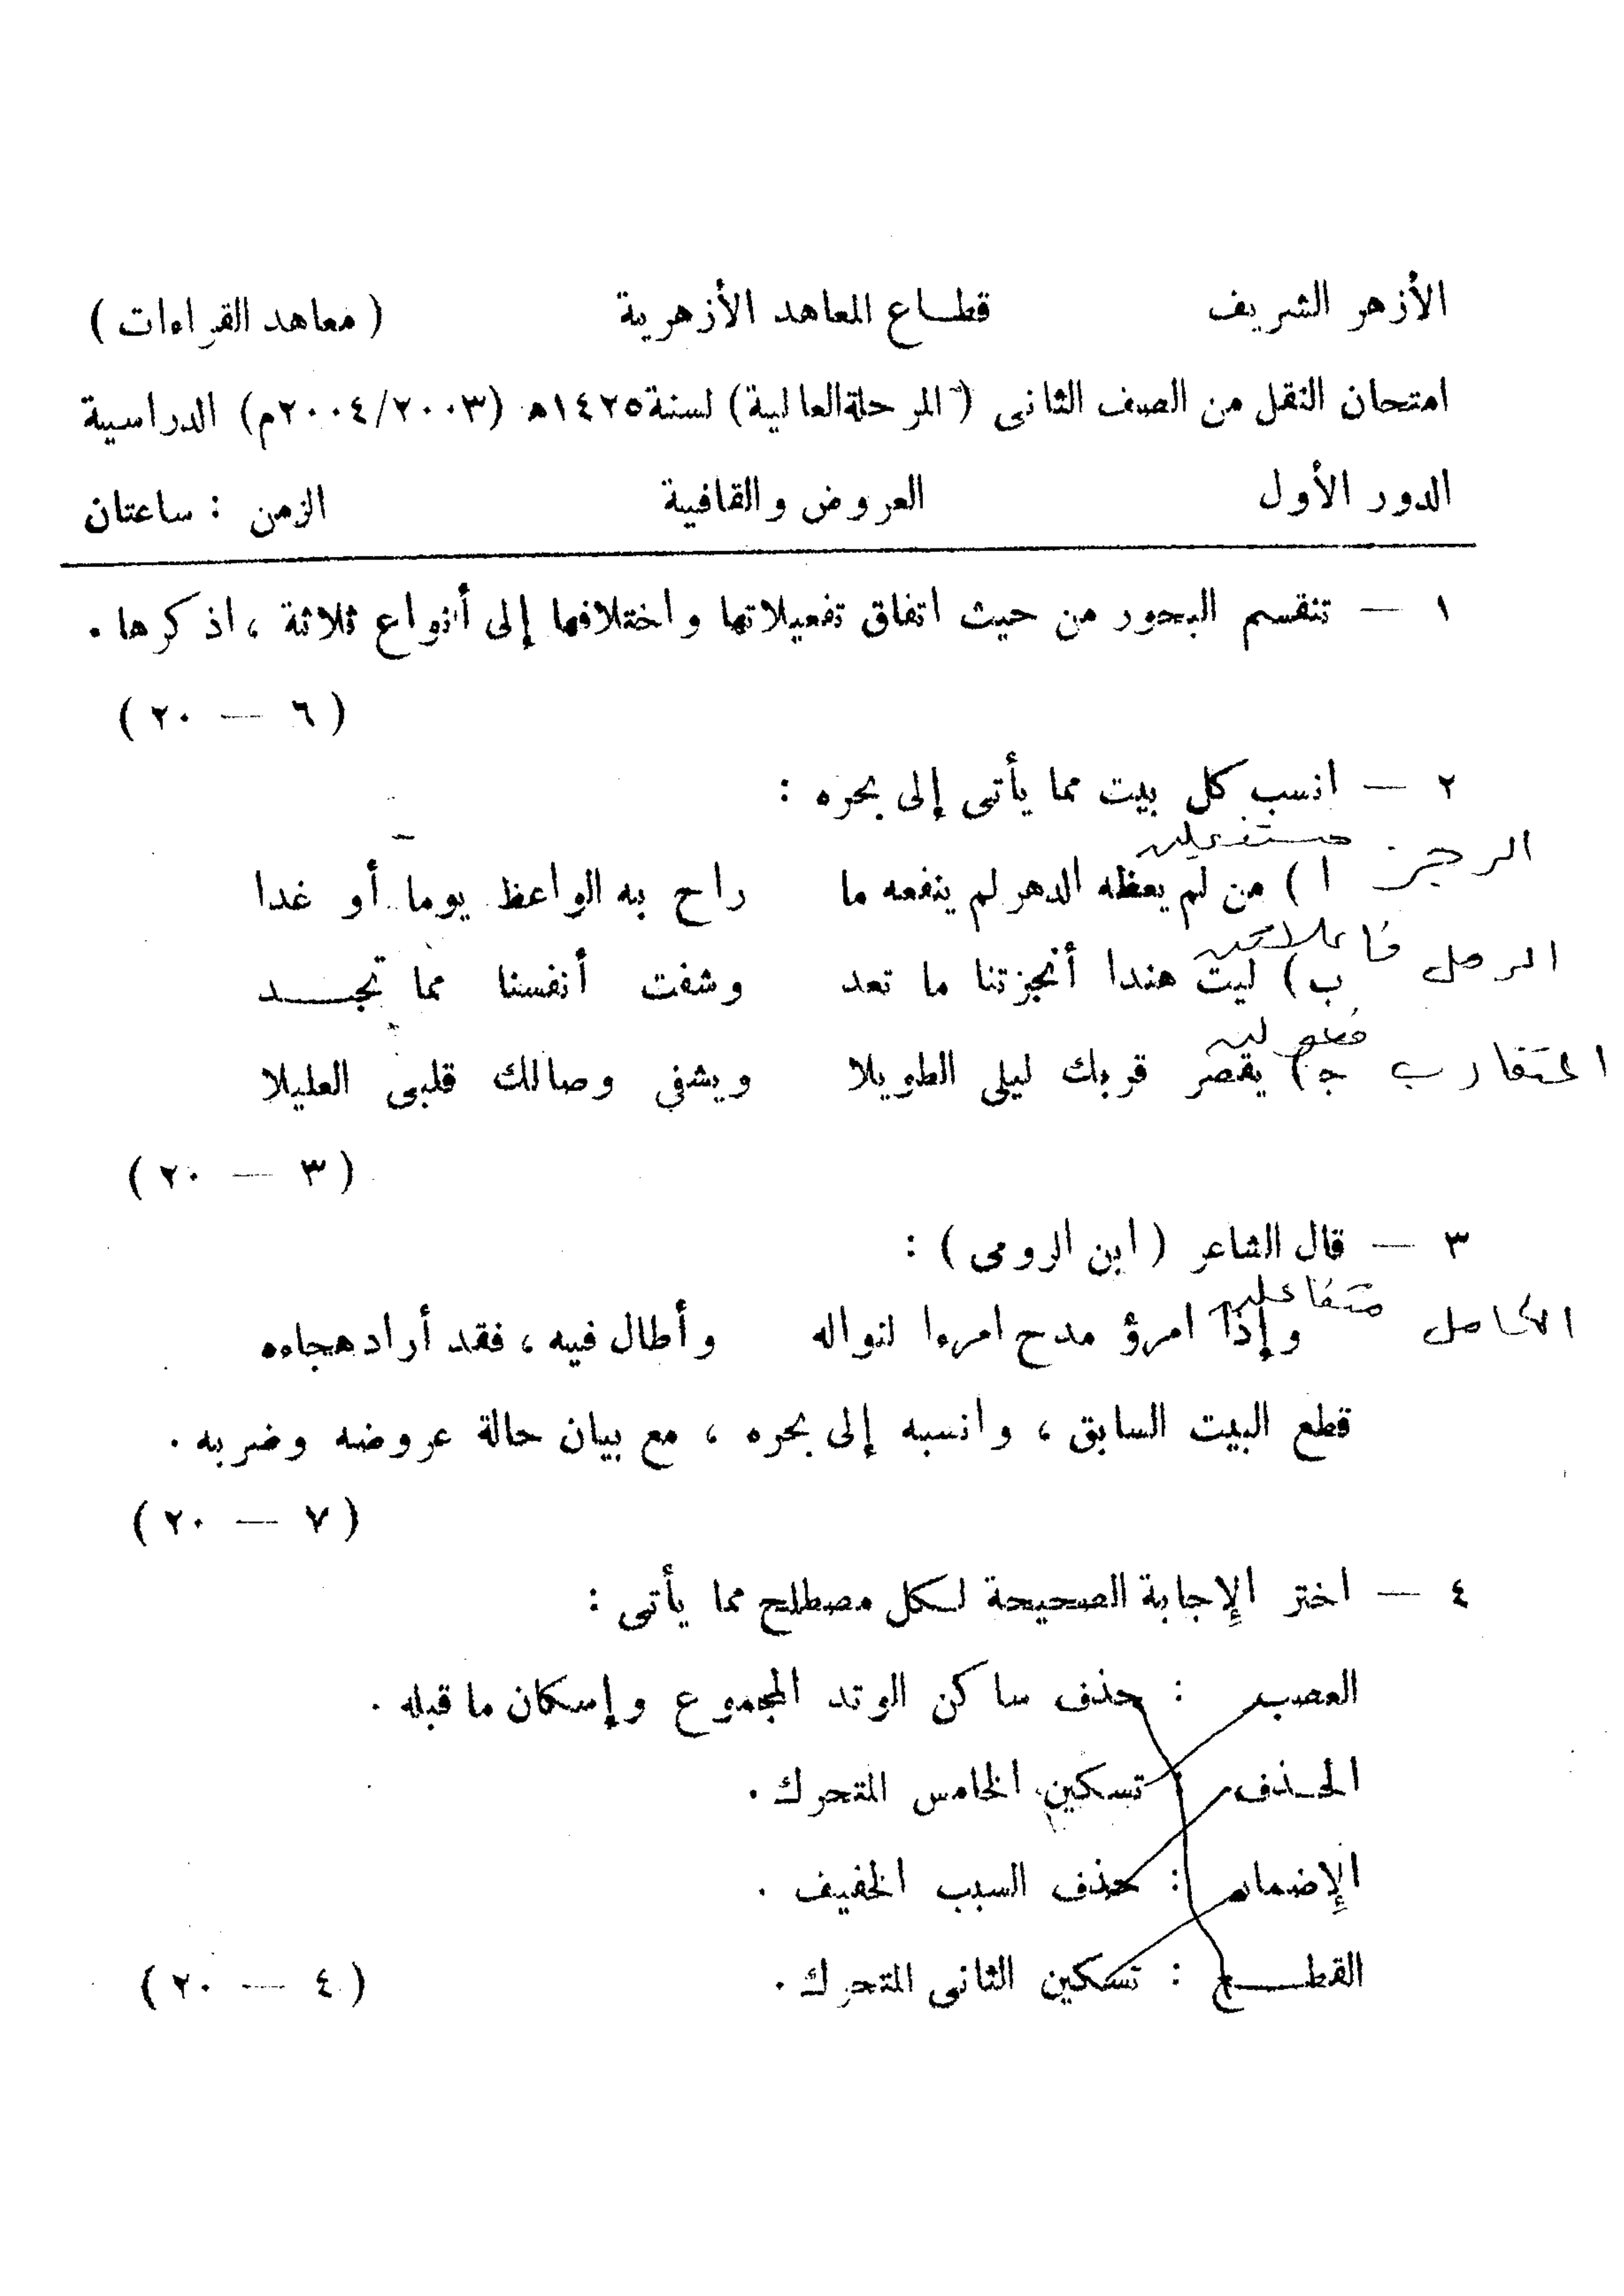 الأزهر الشريف قطاع المعاهد الأزهرية ( معاهد القراءات )
امتحان النقل من الصف الثانى ( المرحلة العالية ) لسنة ١٤٢٥ه (٢٠٠٤/٢٠٠٣م) الدراسية
الدور الأول العروض والقافية الزمن : ساعتان
١ — تنقسم البحور من حيث اتفاق تفعيلاتها واختلافها إلى أنواع ثلاثة ، اذكرها .
( ٦ — ٢٠ )
٢ — انسب كل بيت مما يأتى إلى بحره :
الرجز مستفعلن
ا ) من لم يعظه الدهر لم ينفعه ما راح به الواعظ يوما أو غدا
الرمل فاعلاتن
ب ) ليت هندا أنجزتنا ما تعد وشفت أنفسنا مما تجد
المتقارب فعولن
ج ) يقصر قربك ليلى الطويلا ويشفى وصالك قلبى العليلا
( ٣ — ٢٠ )
٣ — قال الشاعر ( ابن الرومى ) :
الكامل متفاعلن
وإذا امرؤ مدح امرءا لنواله وأطال فيه ، فقد أراد هجاءه
قطع البيت السابق ، وانسبه إلى بحره ، مع بيان حالة عروضه وضربه .
( ٧ — ٢٠ )
٤ — اختر الإجابة الصحيحة لكل مصطلح مما يأتى :
العصب : حذف ساكن الوتد المجموع وإسكان ما قبله .
الحذف : تسكين الخامس المتحرك .
الإضمار : حذف السبب الخفيف .
القطع : تسكين الثانى المتحرك .
( ٤ — ٢٠ )